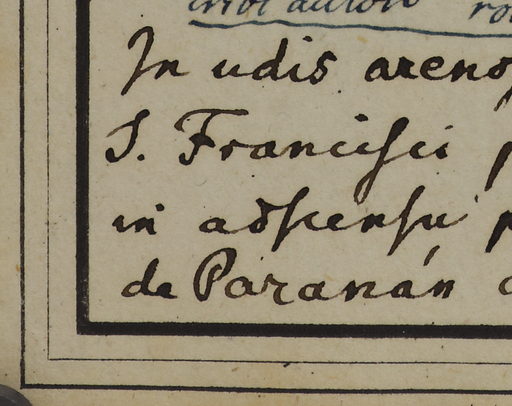 In udis areno
S. Francisci p
in adscensu p
de Paranán